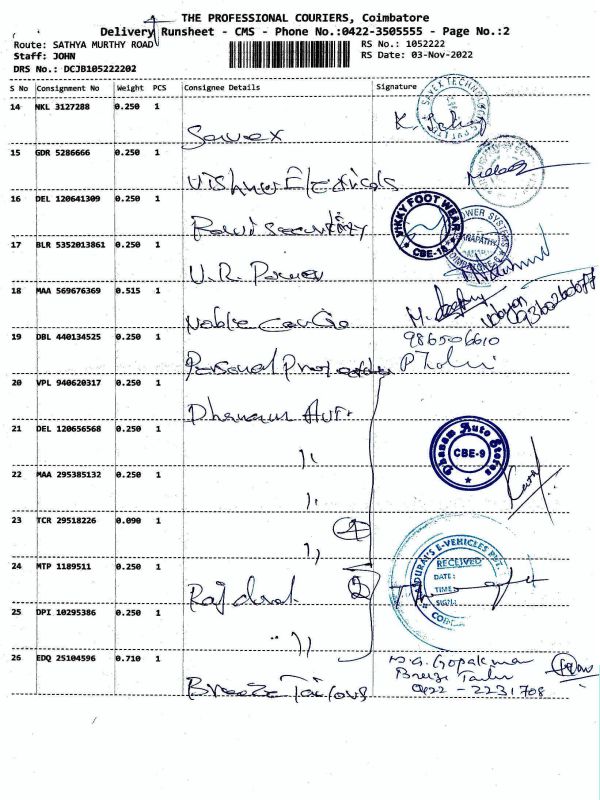 THE PROFESSIONAL COURIERS, Coimbatore
Delivery Runsheet - CMS - Phone No.:0422-3505555 - Page No.:2
Route: SATHYA MURTHY ROAD
Staff: JOHN
DRS No.: DCJB105222202
RS No.: 1052222
RS Date: 03-Nov-2022
S No Consignment No Weight PCS Consignee Details Signature
14 NKL 3127288 0.250 1
Savex
SAVEX TECHNOLOG
15 GDR 5286666 0.250 1
Vishnu Electricals
16 DEL 120641309 0.250 1
Security
VIKKY FOOT WEAR
CBE-18
POWER SYSTEMS
17 BLR 5352013861 0.250 1
U.R. Power
18 MAA 569676369 0.515 1
Noble
M.
19 DBL 440134525 0.250 1
Personal
986506610
20 VPL 940620317 0.250 1
Auto
21 DEL 120656568 0.250 1
,,
Dhanam Auto Stores
CBE-9
22 MAA 295385132 0.250 1
,,
23 TCR 29518226 0.090 1
,,
4
24 MTP 1189511 0.250 1
2
E-VEHICLES PVT.
RECEIVED
DATE:
TIME:
SIGN:
25 DPI 10295386 0.250 1
,,
26 EDQ 25104596 0.710 1
Breeze Tailors
Gopakumar
Breeze
0422 - 2231708